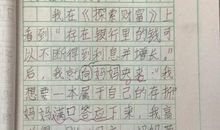 我在《探索财富》上
看到"存在银行里的钱可
以不断得到利息并增长。"
后，我就向妈妈央求："我
想要一本属于自己的存折
妈妈满口答应下来，我富